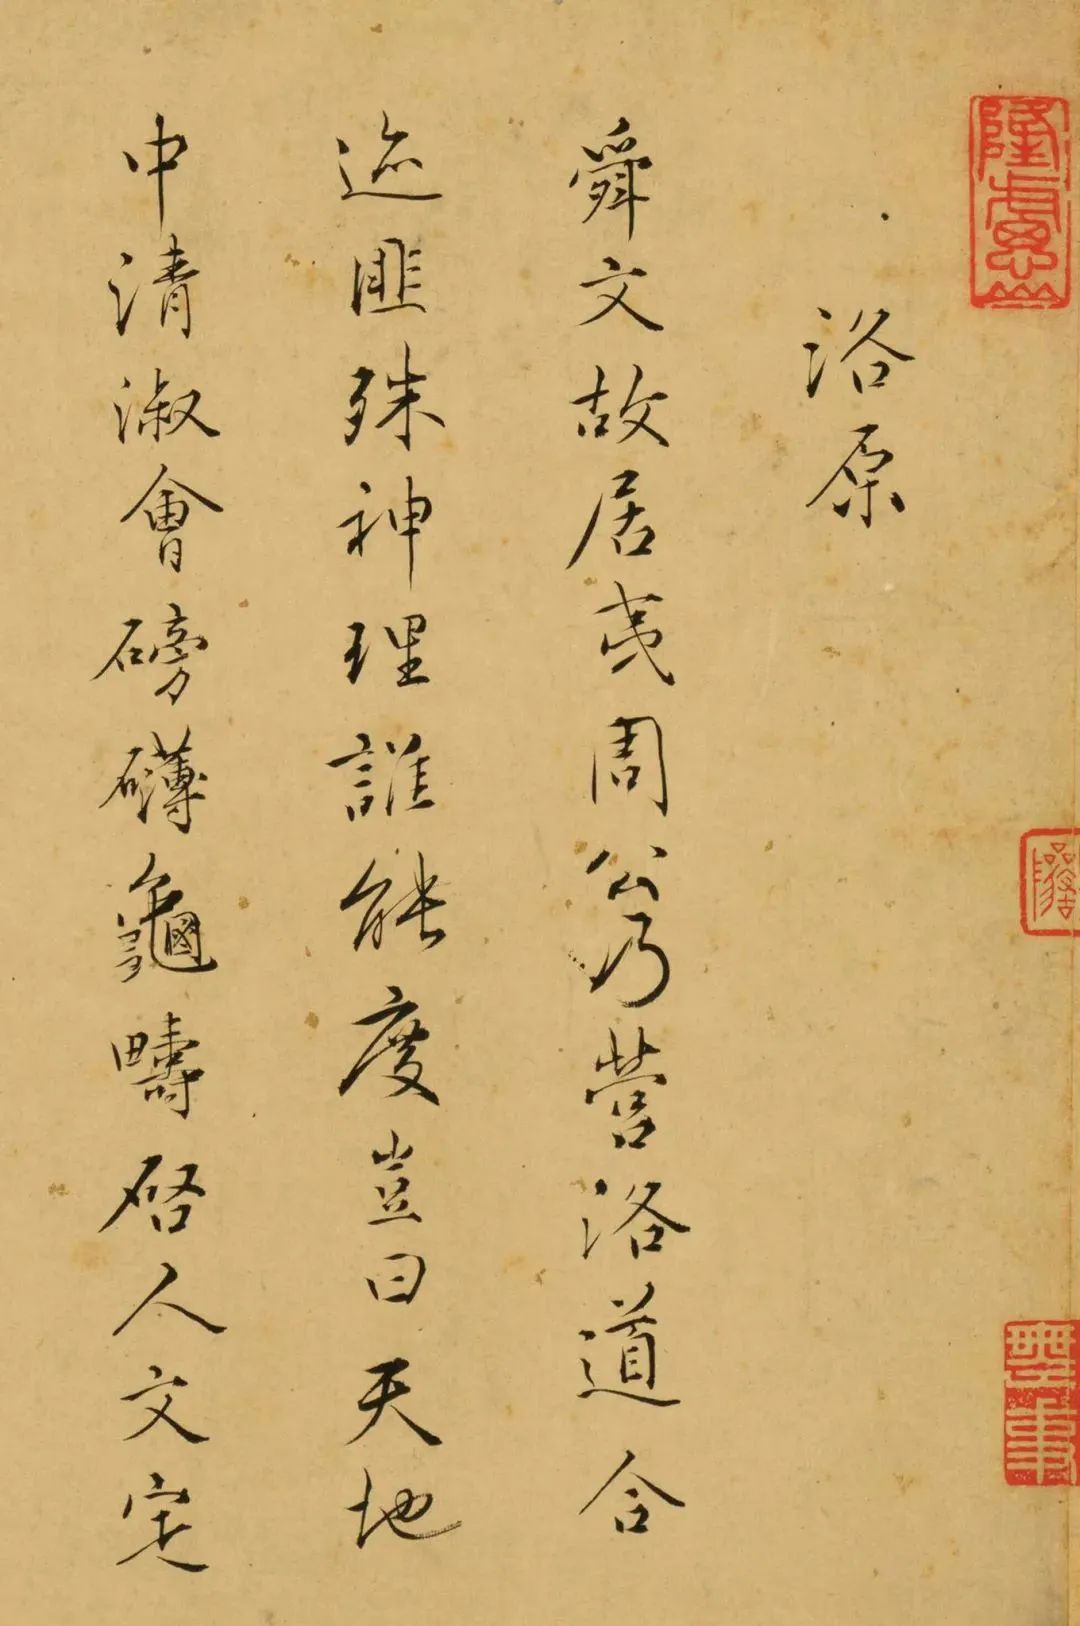 洛原
舜文故居夷周公乃營洛道合
迹匪殊神理誰能度豈曰天地
中清淑會磅礴龜疇啓人文宅